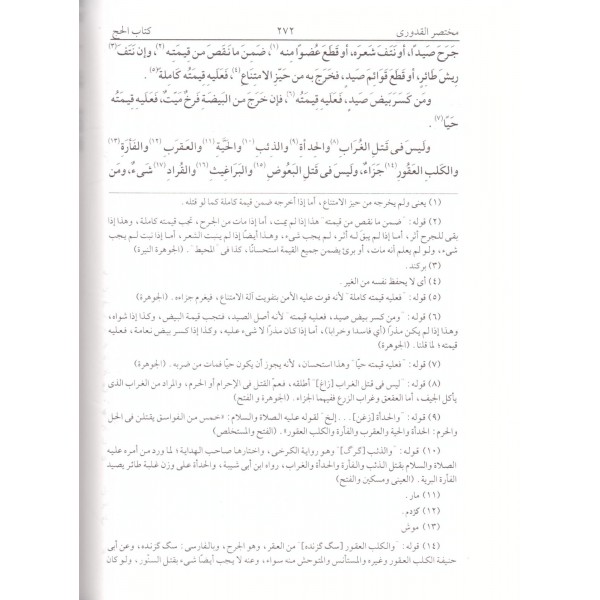 مختصر القدورى ٢٧٢ كتاب الحج
جَرَحَ صَيدًا، أو نَتَفَ شَعرَه، أو قَطَعَ عُضوًا مِنه (١)، ضَمِنَ مَا نَقَصَ مِن قِيمَتِه (٢)، وإن نَتَفَ (٣)
رِيشَ طائرٍ، أو قَطَعَ قَوائِمَ صَيدٍ، فخَرَجَ بِه مِن حَيِّزِ الامتِناعِ (٤)، فَعَلَيهِ قِيمَتُه كَامِلَةً (٥).
ومَن كَسَرَ بَيضَ صَيدٍ، فَعَلَيهِ قِيمَتُه (٦)، فإن خَرَجَ مِن البَيضَةِ فَرخٌ مَيِّتٌ، فعَلَيهِ قِيمَتُه
حَيًّا (٧).
ولَيسَ فى قَتلِ الغُرابِ (٨) والحِدأةِ (٩) والذِئبِ (١٠) والحَيَّةِ (١١) والعَقرَبِ (١٢) والفَأرَةِ (١٣)
والكَلبِ العَقُورِ (١٤) جَزَاءٌ، ولَيسَ فى قَتلِ البَعُوضِ (١٥) والبَرَاغيثِ (١٦) والقُرادِ (١٧) شَىءٌ، ومَن
(١) يعنى ولم يخرجه من حيز الامتناع، أما إذا أخرجه ضمن قيمة كاملة كما لو قتله.
(٢) قوله: "ضمن ما نقص من قيمته" هذا إذا لم يمت، أما إذا مات من الجرح، تجب قيمته كاملة، وهذا إذا
بقى للجرح أثر، أما إذا لم يبق له أثر، لم يجب شىء، وهذا أيضًا إذا لم ينبت الشعر، أما إذا نبت لم يجب
شىء، ولو لم يعلم أنه مات، أو برئ يضمن جميع القيمة استحسانًا، كذا فى "المحيط". (الجوهرة النيرة)
(٣) بركند.
(٤) أى لا يحفظ نفسه من الغير.
(٥) قوله: "فعليه قيمته كاملة" لأنه فوت عليه الأمن بتفويت آلة الامتناع، فيغرم جزاءه. (الجوهرة)
(٦) قوله: "ومن كسر بيض صيد، فعليه قيمته" لأنه أصل الصيد، فتجب قيمة البيض، وكذا إذا شواه،
وهذا إذا لم يكن مذرًا (أى فاسدا وخرابا)، أما إذا كان مذرًا لا شىء عليه، وكذا إذا كسر بيض نعامة، فعليه
قيمته؛ لما قلنا. (الجوهرة)
(٧) قوله: "فعليه قيمته حيًا" وهذا استحسان، لأنه يجوز أن يكون حيًا فمات من ضربه. (الجوهرة)
(٨) قوله: "ليس فى قتل الغراب [زاغ]" أطلقه، فعمّ القتل فى الإحرام أو الحرم، والمراد من الغراب الذى
يأكل الجيف، أما العقعق وغراب الزرع ففيهما الجزاء. (الجوهرة و الفتح)
(٩) قوله: "والحدأة [زغن] . . . إلخ" لقوله عليه الصلاة والسلام: «خمس من الفواسق يقتلن فى الحل
والحرم: الحدأة والحية والعقرب والفأرة والكلب العقور». (الفتح والمستخلص)
(١٠) قوله: "والذئب [گرگ]" وهو رواية الكرخى، واختارها صاحب الهداية؛ لما ورد من أمره عليه
الصلاة والسلام بقتل الذئب والفأرة والحدأة والغراب، رواه ابن أبى شيبة، والحدأة على وزن عنبة طائر يصيد
الفأرة البرية. (العينى ومسكين والفتح)
(١١) مار.
(١٢) كژدم.
(١٣) موش
(١٤) قوله: "والكلب العقور [سگ گزنده]" من العقر، وهو الجرح، وبالفارسى: سگ گزنده، وعن أبى
حنيفة الكلب العقور وغيره والمستأنس والمتوحش منه سواء، وعنه لا يجب أيضًا شىء بقتل السنّور، ولو كان